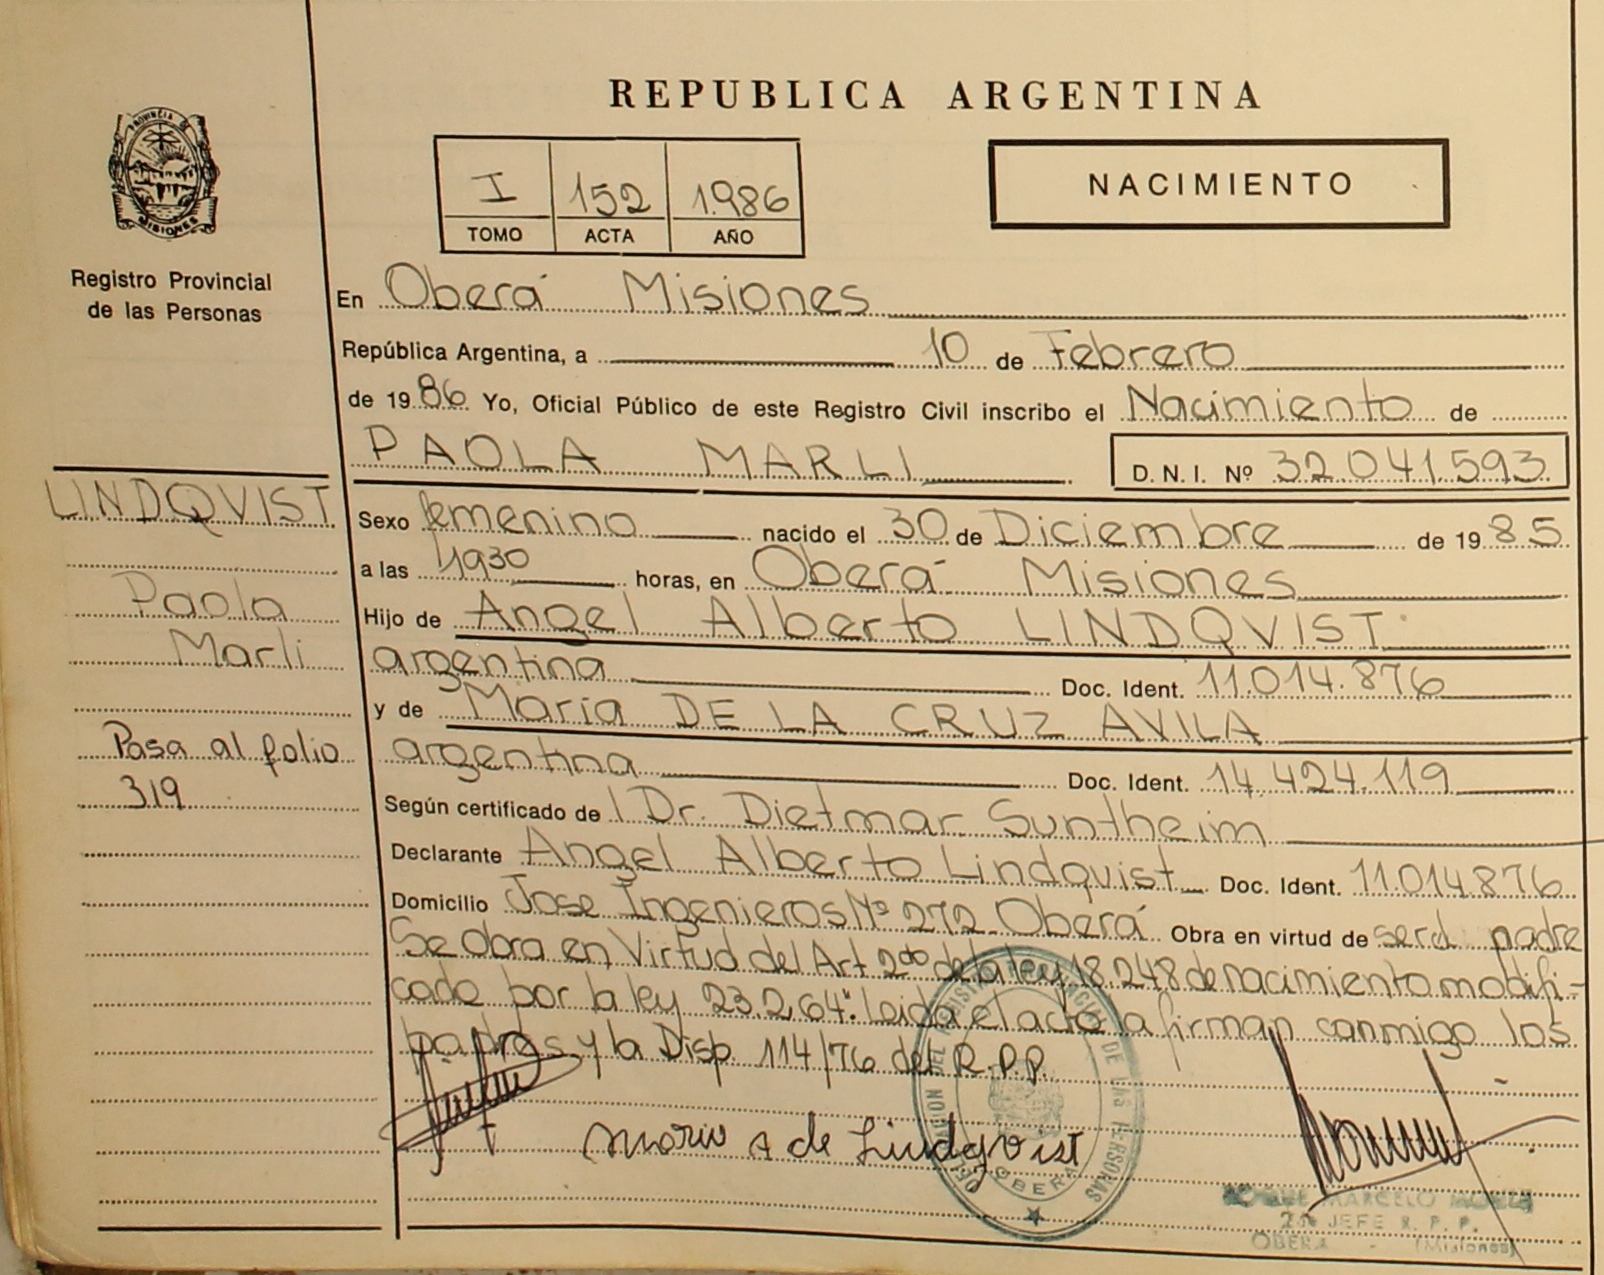 REPUBLICA ARGENTINA
PROVINCIA DE
MISIONES
Registro Provincial
de las Personas
I 152 1986
TOMO ACTA AÑO
NACIMIENTO
En Oberá Misiones
República Argentina, a 10 de Febrero
de 1986 Yo, Oficial Público de este Registro Civil inscribo el Nacimiento de
PAOLA MARLI D.N.I. Nº 32.041.593
LINDQVIST
Paola
Marli
Pasa al folio
319
Sexo femenino nacido el 30 de Diciembre de 1985
a las 1930 horas, en Oberá Misiones
Hijo de Angel Alberto LINDQVIST
argentina Doc. Ident. 11.014.876
y de María DE LA CRUZ AVILA
argentina Doc. Ident. 14.424.119
Según certificado de l Dr. Dietmar Suntheim
Declarante Angel Alberto Lindqvist Doc. Ident. 11.014.876
Domicilio Jose Ingenieros Nº 272 Oberá Obra en virtud de ser el padre
Se obra en Virtud del Art 2do de la ley 18.248 de nacimiento modifi-
cado por la ley 23.264". Leida el acta la firman conmigo los
padres y la Disp. 114/76 del R.P.P.
Maria A de Lindqvist
DE LAS PERSONAS
OBERA
MARCELO
JEFE R. P. P.
OBERA (Misiones)